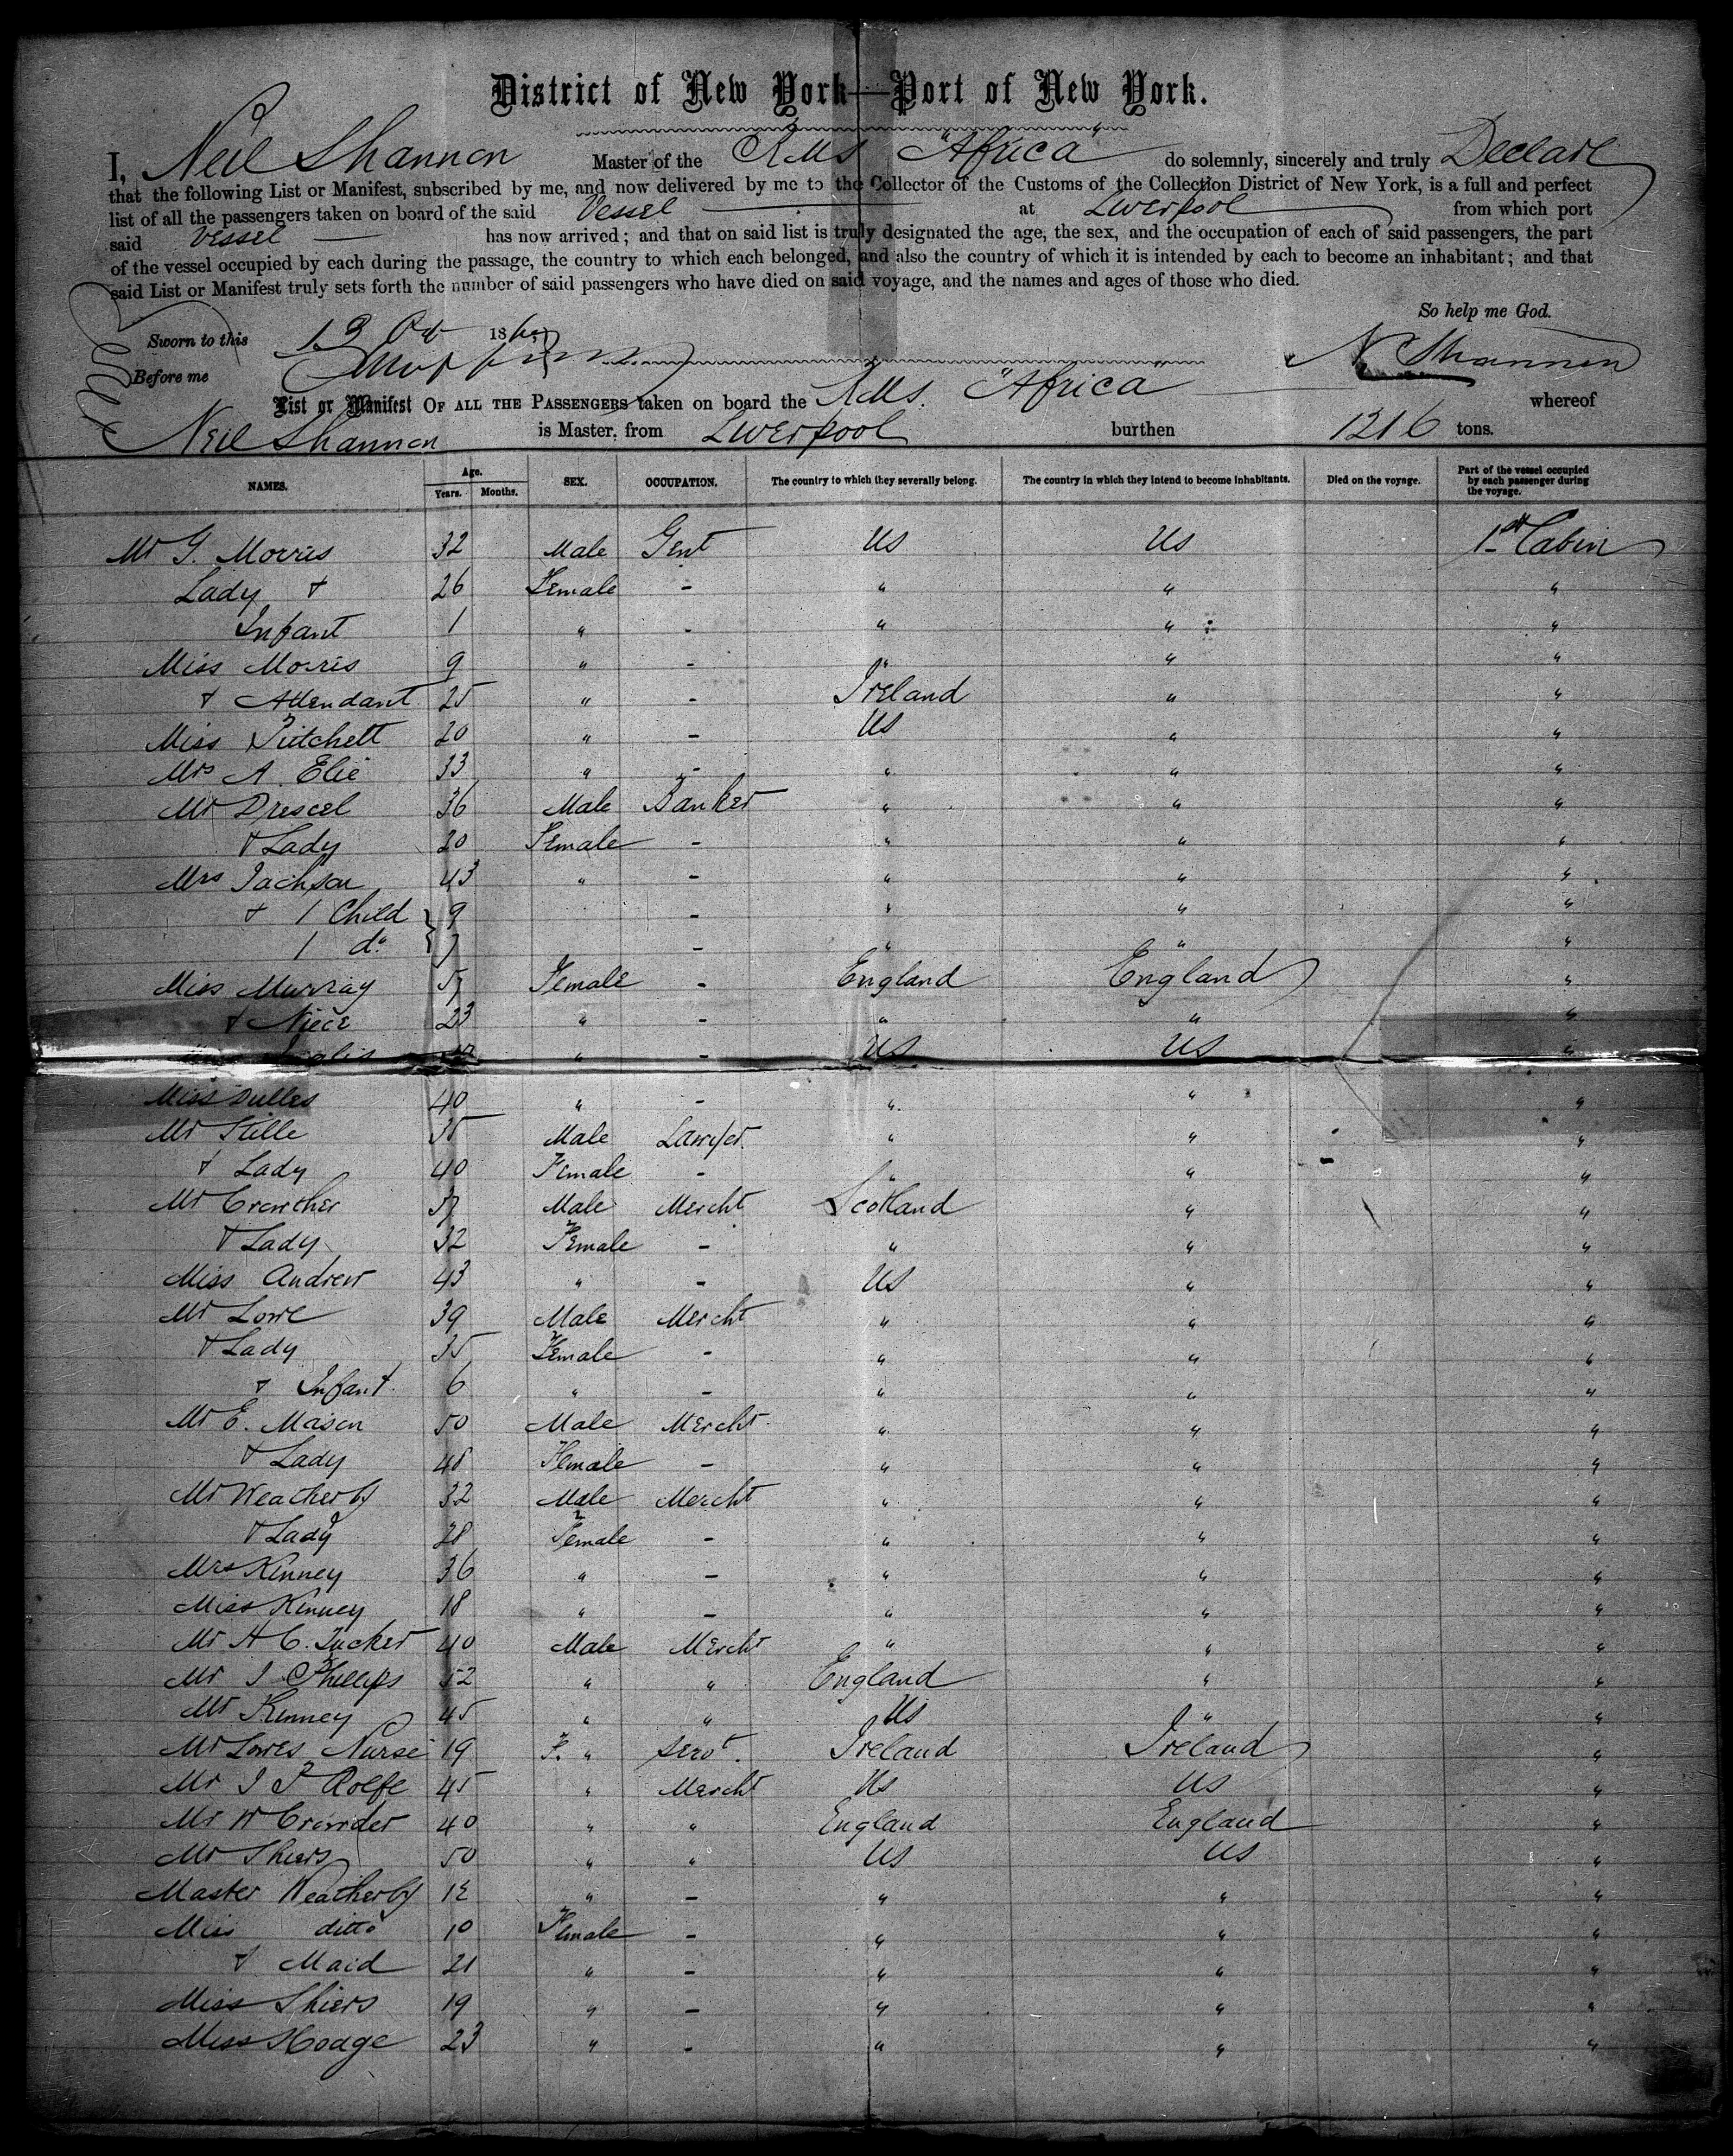 District of New York—Port of New York.
I, Neil Shannon Master of the RMS "Africa" do solemnly, sincerely and truly Declare
that the following List or Manifest, subscribed by me, and now delivered by me to the Collector of the Customs of the Collection District of New York, is a full and perfect
list of all the passengers taken on board of the said Vessel at Liverpool from which port
said Vessel has now arrived; and that on said list is truly designated the age, the sex, and the occupation of each of said passengers, the part
of the vessel occupied by each during the passage, the country to which each belonged, and also the country of which it is intended by each to become an inhabitant; and that
said List or Manifest truly sets forth the number of said passengers who have died on said voyage, and the names and ages of those who died.
So help me God.
Sworn to this 186
N Shannon
Before me
List or Manifest OF ALL THE PASSENGERS taken on board the RMS. "Africa" whereof
Neil Shannon is Master, from Liverpool burthen 1216 tons.
NAMES. Age. Years. Months. SEX. OCCUPATION. The country to which they severally belong. The country in which they intend to become inhabitants. Died on the voyage. Part of the vessel occupied by each passenger during the voyage.
Mr G. Morris 32 Male Gent US US 1st Cabin
Lady & 26 Female - " " "
Infant 1 " - " " "
Miss Morris 9 " - " " "
& Attendant 25 " - Ireland " "
Miss 20 " - US " "
Mrs A. Elie 33 " - " " "
Mr Drescel 36 Male Banker " " "
& Lady 20 Female - " " "
Mrs Jackson 43 " - " " "
& 1 Child 9 - " " "
1 do. 7 - " " "
Miss Murray Female - England England "
& Niece 23 " - " " "
" - US US "
Miss Dulles 40 " - " " "
Mr Stille 35 Male Lawyer. " " "
& Lady 40 Female - " " "
Mr Crowther Male Mercht Scotland " "
& Lady 32 Female - " " "
Miss Andrew 43 " - US " "
Mr Lowe 39 Male Mercht " " "
& Lady 35 Female - " " "
& Infant. 6 " - " " "
Mr E. Mason 50 Male Mercht. " " "
& Lady 48 Female - " " "
Mr Weatherby 32 Male Mercht " " "
& Lady 28 Female - " " "
Mrs Kinney 36 " - " " "
Miss Kinney 18 " - " " "
Mr H C. Tucker 40 Male Mercht " " "
Mr J Phillips 52 " " England " "
Mr Kinney 45 " " US " "
Mr Lowes Nurse 19 F. " Servt. Ireland Ireland "
Mr J P Rolfe 45 " Mercht US US "
Mr W Crowder 40 " " England England "
Mr Shiers 50 " " US US "
Master Weatherby 12 " - " " "
Miss ditto 10 Female - " " "
& Maid 21 " - " " "
Miss Shiers 19 " - " " "
Miss Hoage 23 " - " " "